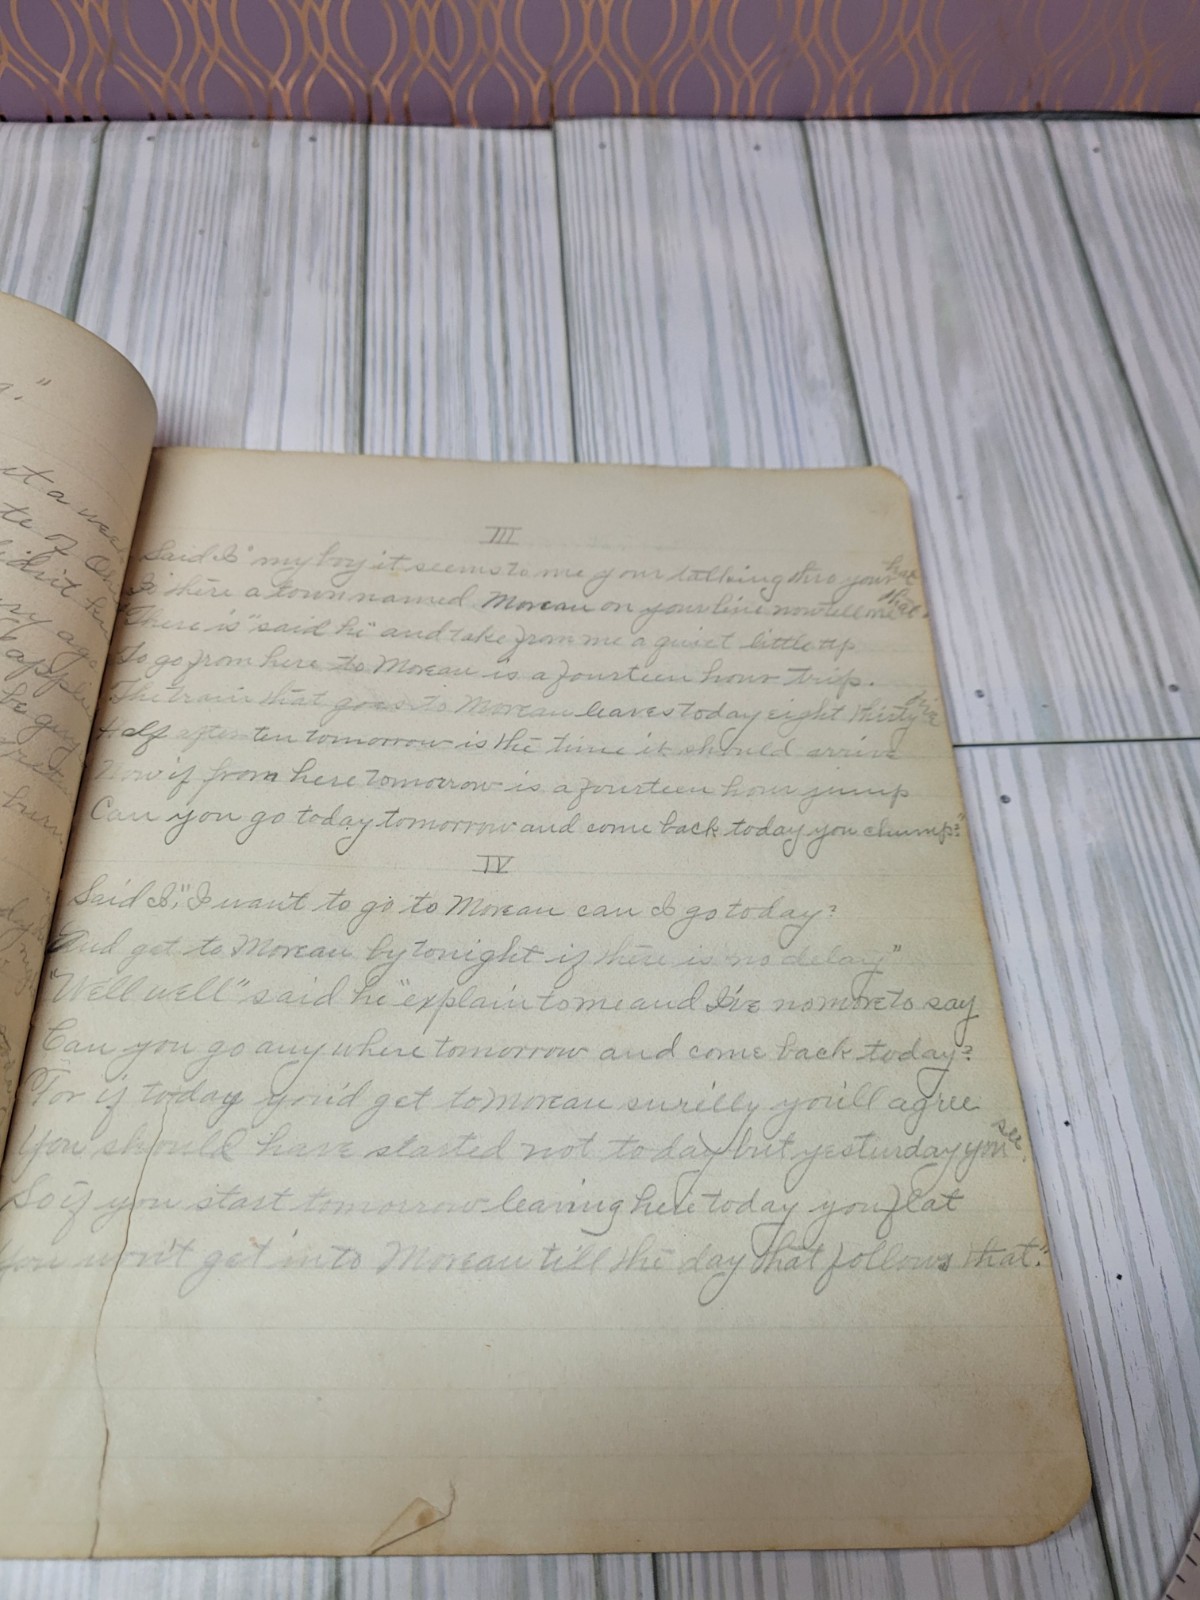 a."
it a
te of
didn't
ago
III
Said I "my boy it seems to me your talking thro your hat
Is there a town named Moreau on your line now tell me that."
"There is" said he "and take from me a quiet little tip
To go from here to Moreau is a fourteen hour trip.
The train that goes to Moreau leaves today eight thirty five
Half after ten tomorrow is the time it should arrive
Now if from here tomorrow is a fourteen hour jump
Can you go today tomorrow and come back today you chump?"
IV
Said I, "I want to go to Moreau can I go today?
And get to Moreau by tonight if there is no delay"
"Well well" said he "explain to me and I've no more to say
Can you go any where tomorrow and come back today?
For if today you'd get to Moreau surelly you'll agree
You should have started not to day but yesterday you see.
So if you start tomorrow leaving here today you flat
You won't get in to Moreau till the day that follows that."